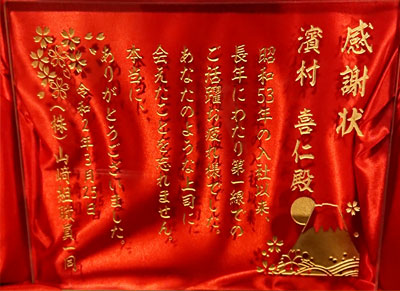 感謝状
濱村 喜仁殿
昭和53年の入社以来、
長年にわたり第一線での
ご活躍お疲れ様でした。
あなたのような上司に
会えたことを忘れません。
本当に、
ありがとうございました。
令和2年3月25日
(株)山﨑組職員一同